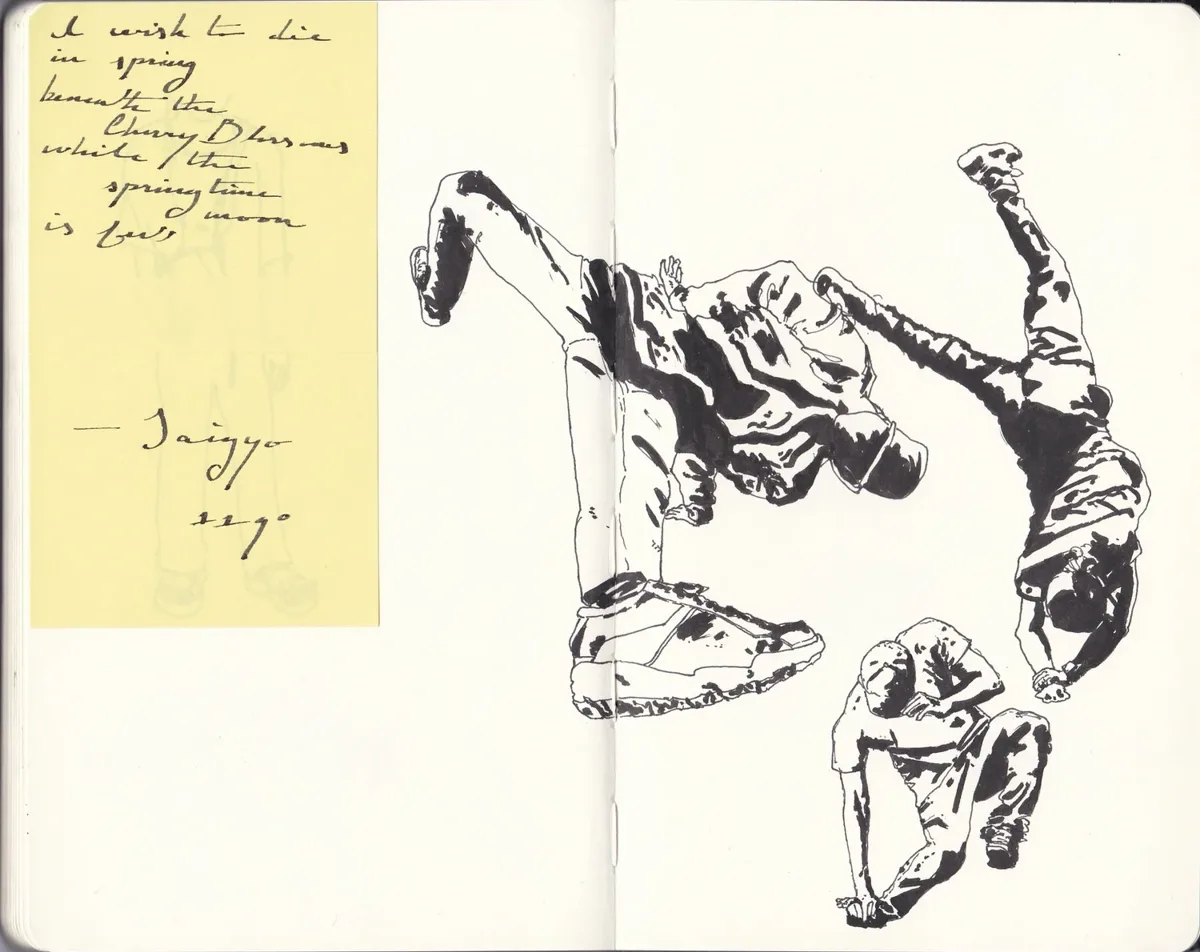 I wish to die
in spring
beneath the
Cherry Blossoms
while the
springtime
moon
is full
— Saigyo
1190